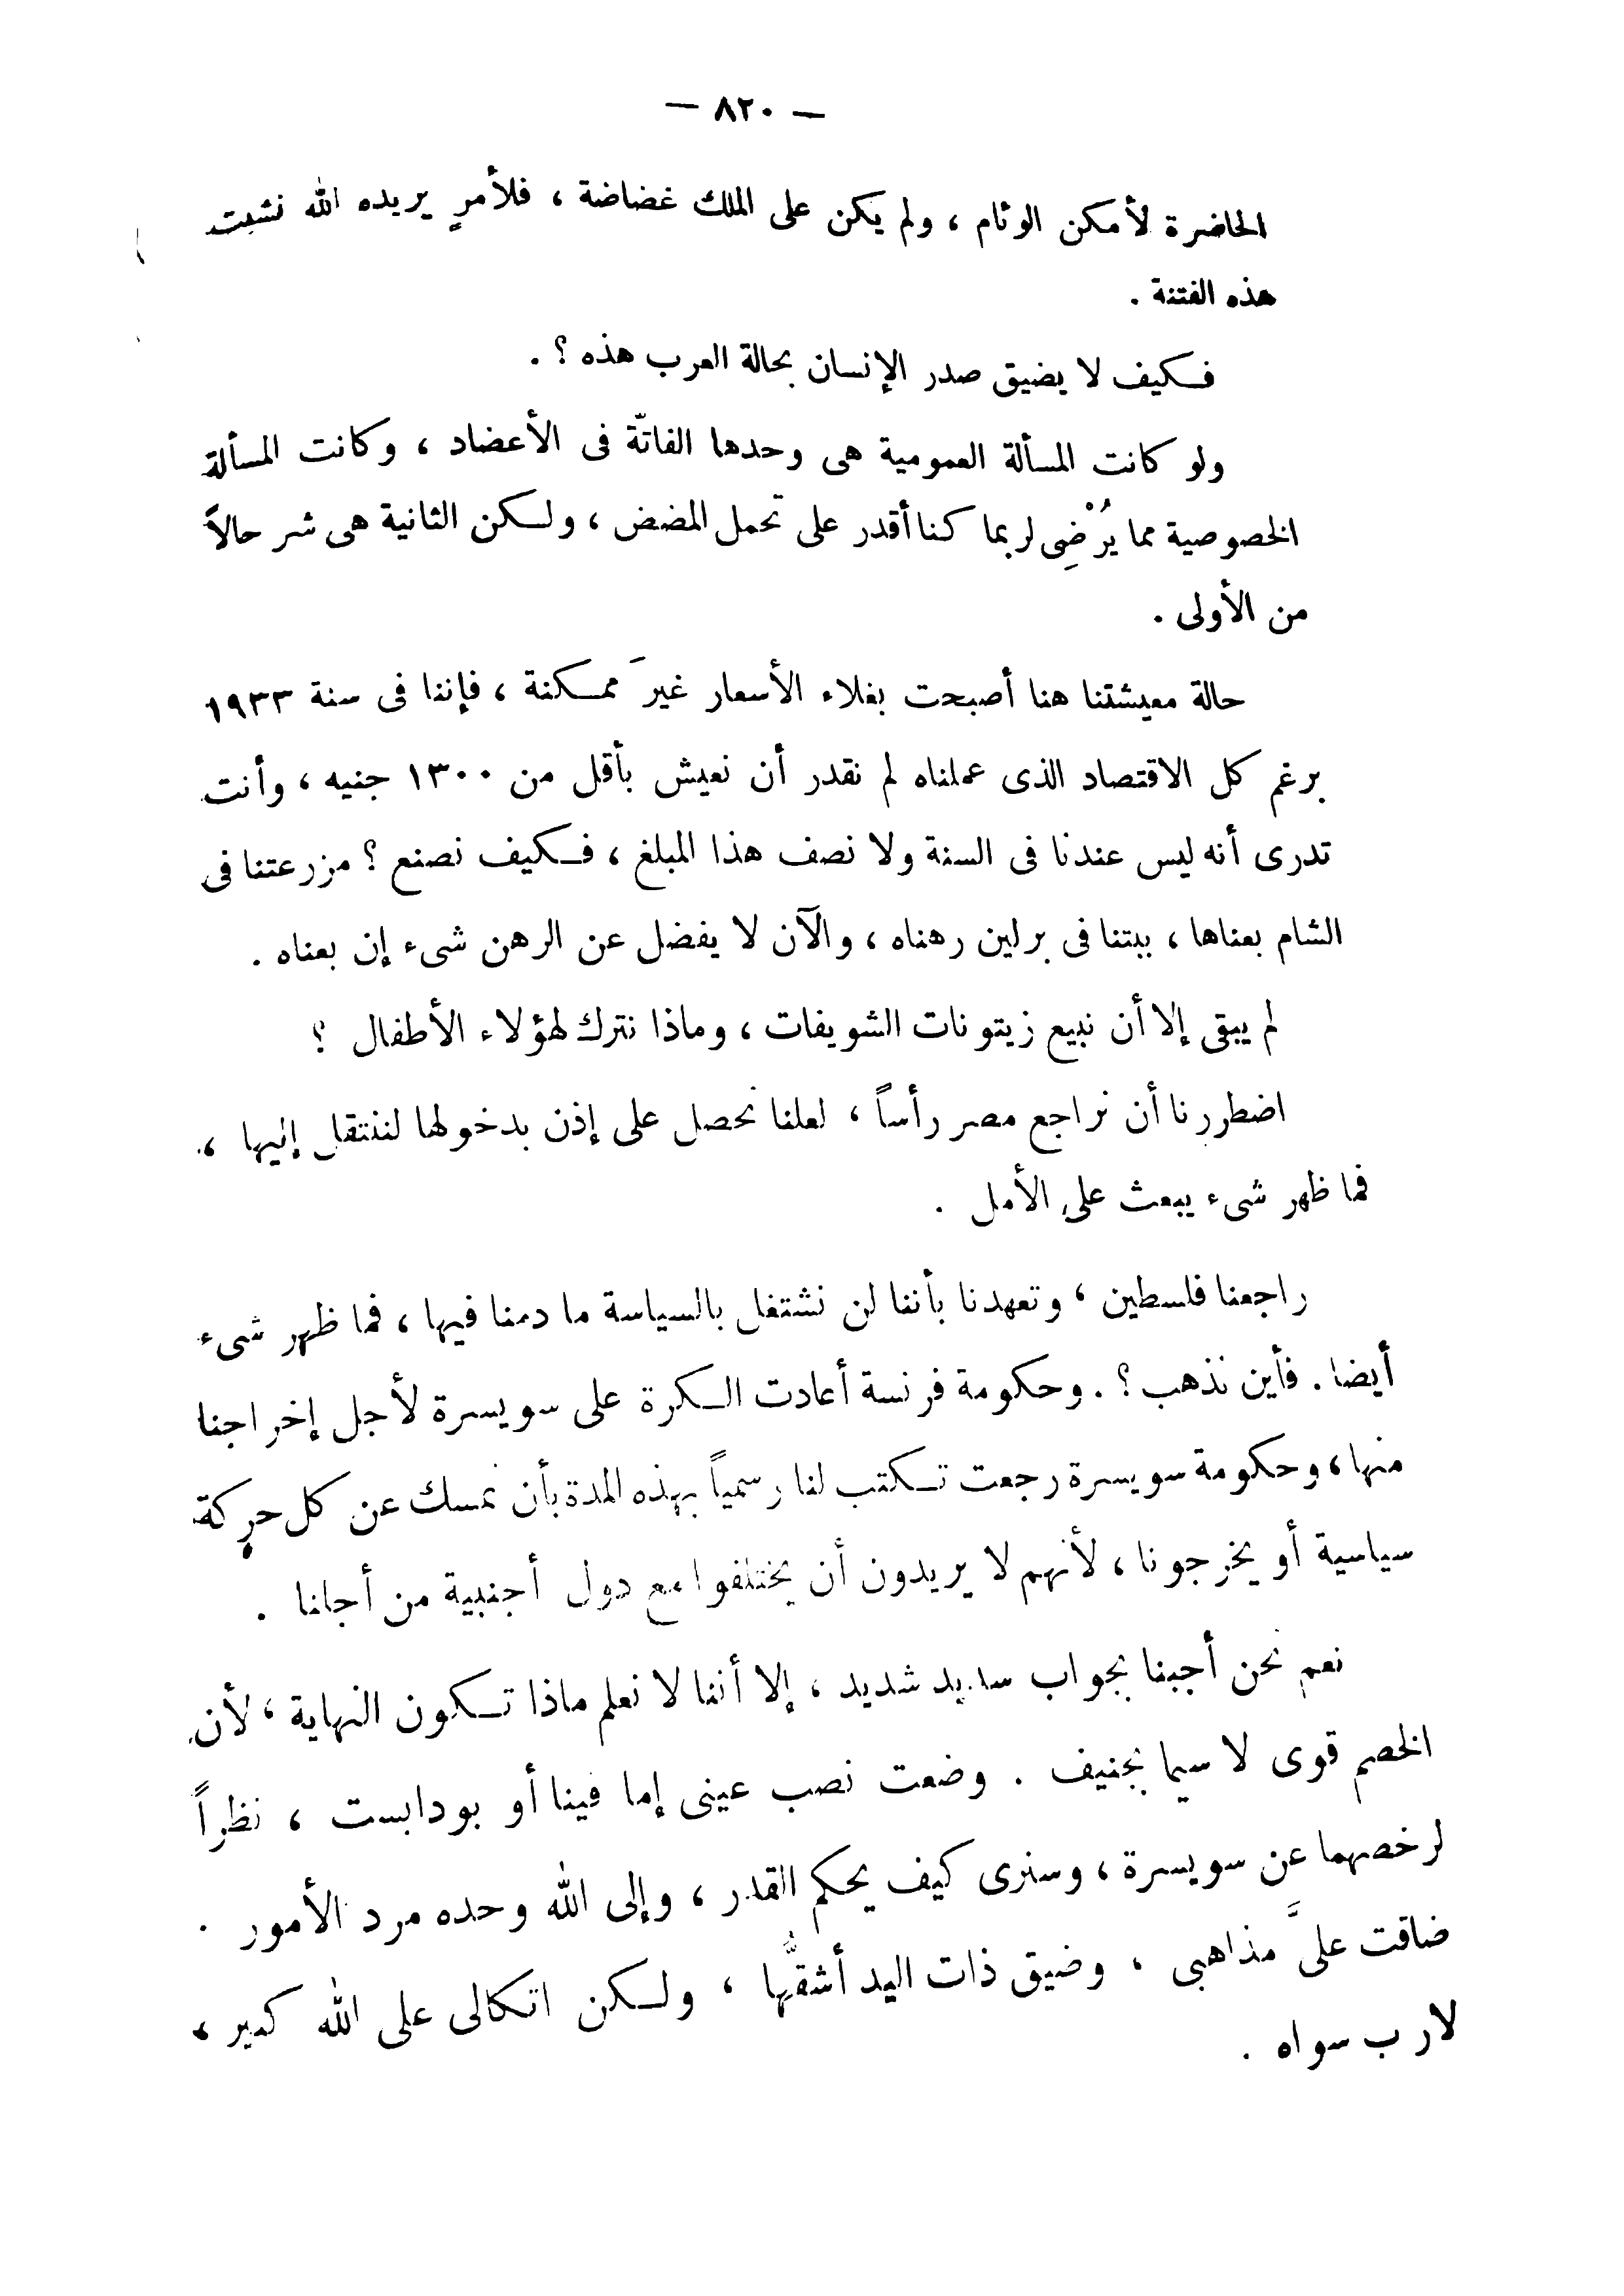 — ٨٢٠ —
الحاضرة لأمكن الوئام ، ولم يكن على الملك غضاضة ، فلأمرٍ يريده الله نشبت
هذه الفتنة .
فكيف لا يضيق صدر الإنسان بحالة العرب هذه ؟ .
ولو كانت المسألة العمومية هى وحدها الفاتّة فى الأعضاد ، وكانت المسألة
الخصوصية مما يُرْضِى لربما كنا أقدر على تحمل المضض ، ولكن الثانية هى شر حالاً
من الأولى .
حالة معيشتنا هنا أصبحت بغلاء الأسعار غيرَ ممكنة ، فإننا فى سنة ١٩٣٣
برغم كل الاقتصاد الذى عملناه لم نقدر أن نعيش بأقل من ١٣٠٠ جنيه ، وأنت
تدرى أنه ليس عندنا فى السنة ولا نصف هذا المبلغ ، فكيف نصنع ؟ مزرعتنا فى
الشام بعناها ، بيتنا فى برلين رهناه ، والآن لا يفضل عن الرهن شىء إن بعناه .
لم يبقى إلا أن نبيع زيتونات الشويفات ، وماذا نترك لهؤلاء الأطفال ؟
اضطررنا أن نراجع مصر رأساً ، لعلنا نحصل على إذن بدخولها لننتقل إليها ،
فما ظهر شىء يبعث على الأمل .
راجعنا فلسطين ، وتعهدنا بأننا لن نشتغل بالسياسة ما دمنا فيها ، فما ظهر شىء
أيضا . فأين نذهب ؟ . وحكومة فرنسة أعادت الكرة على سويسرة لأجل إخراجنا
منها ، وحكومة سويسرة رجعت تكتب لنا رسمياً بهذه المدة بأن نمسك عن كل حركة
سياسية أو يخرجونا ، لأنهم لا يريدون أن يختلفوا مع دول أجنبية من أجلنا .
نعم نحن أجبنا بجواب سديد شديد ، إلا أننا لا نعلم ماذا تكون النهاية ، لأن
الخصم قوى لا سيما بجنيف . وضعت نصب عينى إما فينا أو بودابست ، نظراً
لرخصهما عن سويسرة ، وسنرى كيف يحكم القدر ، وإلى الله وحده مرد الأمور .
ضاقت علىَّ مذاهبى ، وضيق ذات اليد أشقُّها ، ولكن اتكالى على الله كبير ،
لا رب سواه .